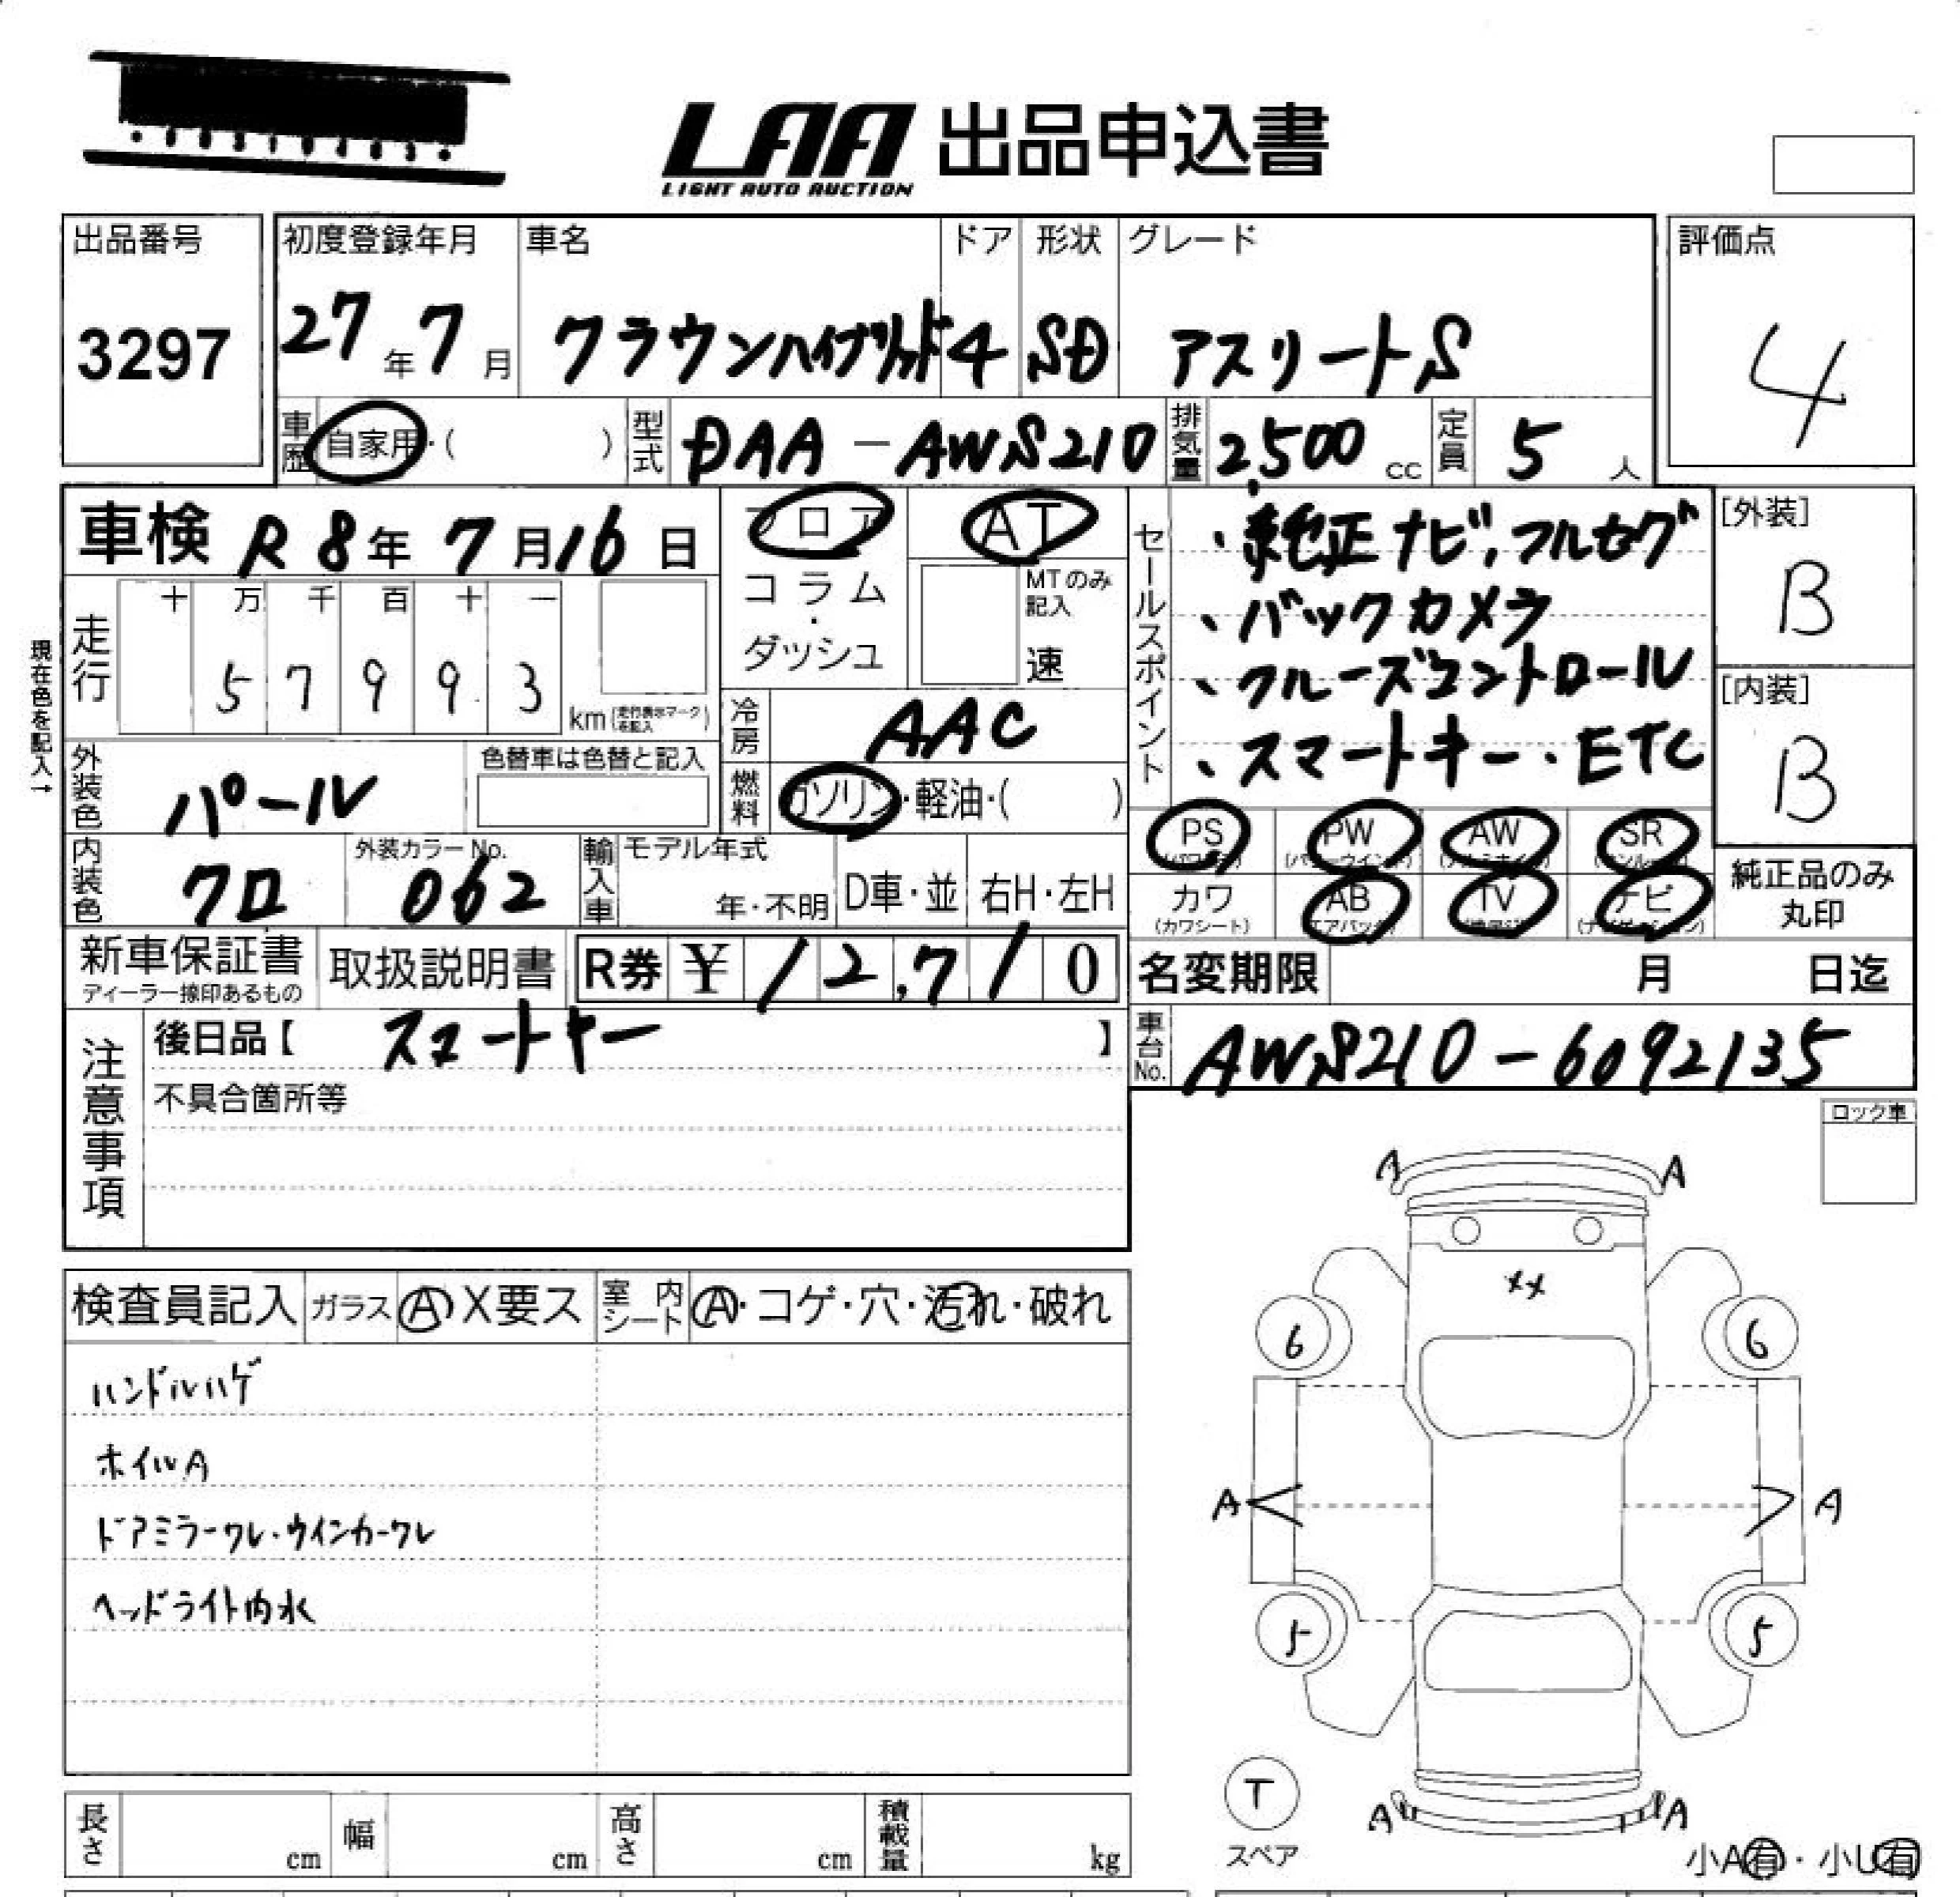 LAA 出品申込書
LIGHT AUTO AUCTION
出品番号
3297
初度登録年月
27年7月
車名
クラウンハイブリッド
ドア
4
形状
SD
グレード
アスリートS
評価点
4
車歴 自家用・( )
型式 DAA-AWS210
排気量 2,500 cc
定員 5 人
車検 R8年7月16日
フロア
コラム
・
ダッシュ
AT
MTのみ
記入
速
現在色を記入→
走行
十 万 千 百 十 一
5 7 9 9 3
km (走行表示マークを記入)
冷房 AAC
燃料 ガソリン・軽油・( )
外装色 パール
色替車は色替と記入
内装色 クロ
外装カラーNo.
062
輸入車 モデル年式
年・不明 D車・並 右H・左H
セールスポイント
・純正ナビ,フルセグ
、バックカメラ
、クルーズコントロール
、スマートキー・ETC
[外装]
B
[内装]
B
PS PW AW SR
(パワステ) (パワーウインド) (アルミホイル) (サンルーフ)
カワ AB TV ナビ
(カワシート) (エアバック) (ナビゲーション)
純正品のみ
丸印
新車保証書
ディーラー捺印あるもの
取扱説明書
R券 ¥ 12,710
名変期限 月 日迄
車台No. AWS210-6092135
注意事項
後日品【 スマートキー 】
不具合箇所等
ロック車
検査員記入 ガラス A X要ス 室内シート A・コゲ・穴・汚れ・破れ
ハンドルハゲ
ホイルA
ドアミラーワレ・ウインカーワレ
ヘッドライト内水
A A
XX
6 6
A A
5 5
T
スペア
A A
小A有・小U有
長さ cm 幅 cm 高さ cm 積載量 kg